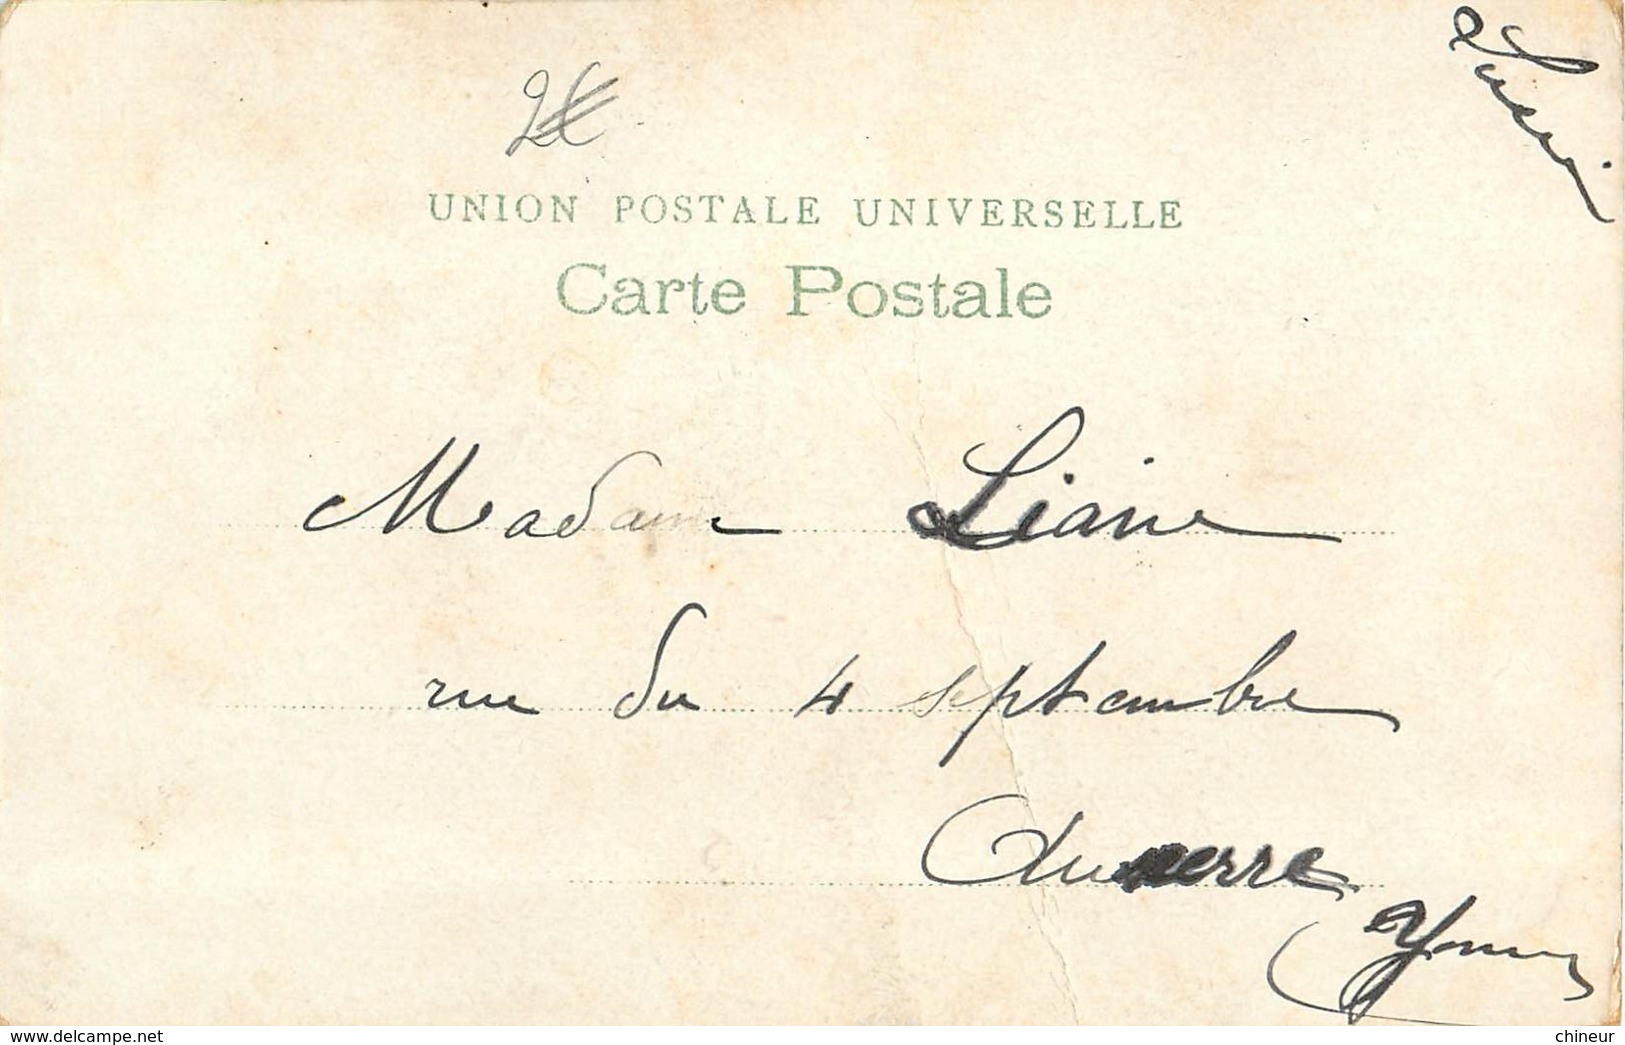 2€
UNION POSTALE UNIVERSELLE
Carte Postale
Madame Liane
rue du 4 septembre
Auxerre
Yonne
delcampe.net
chineur